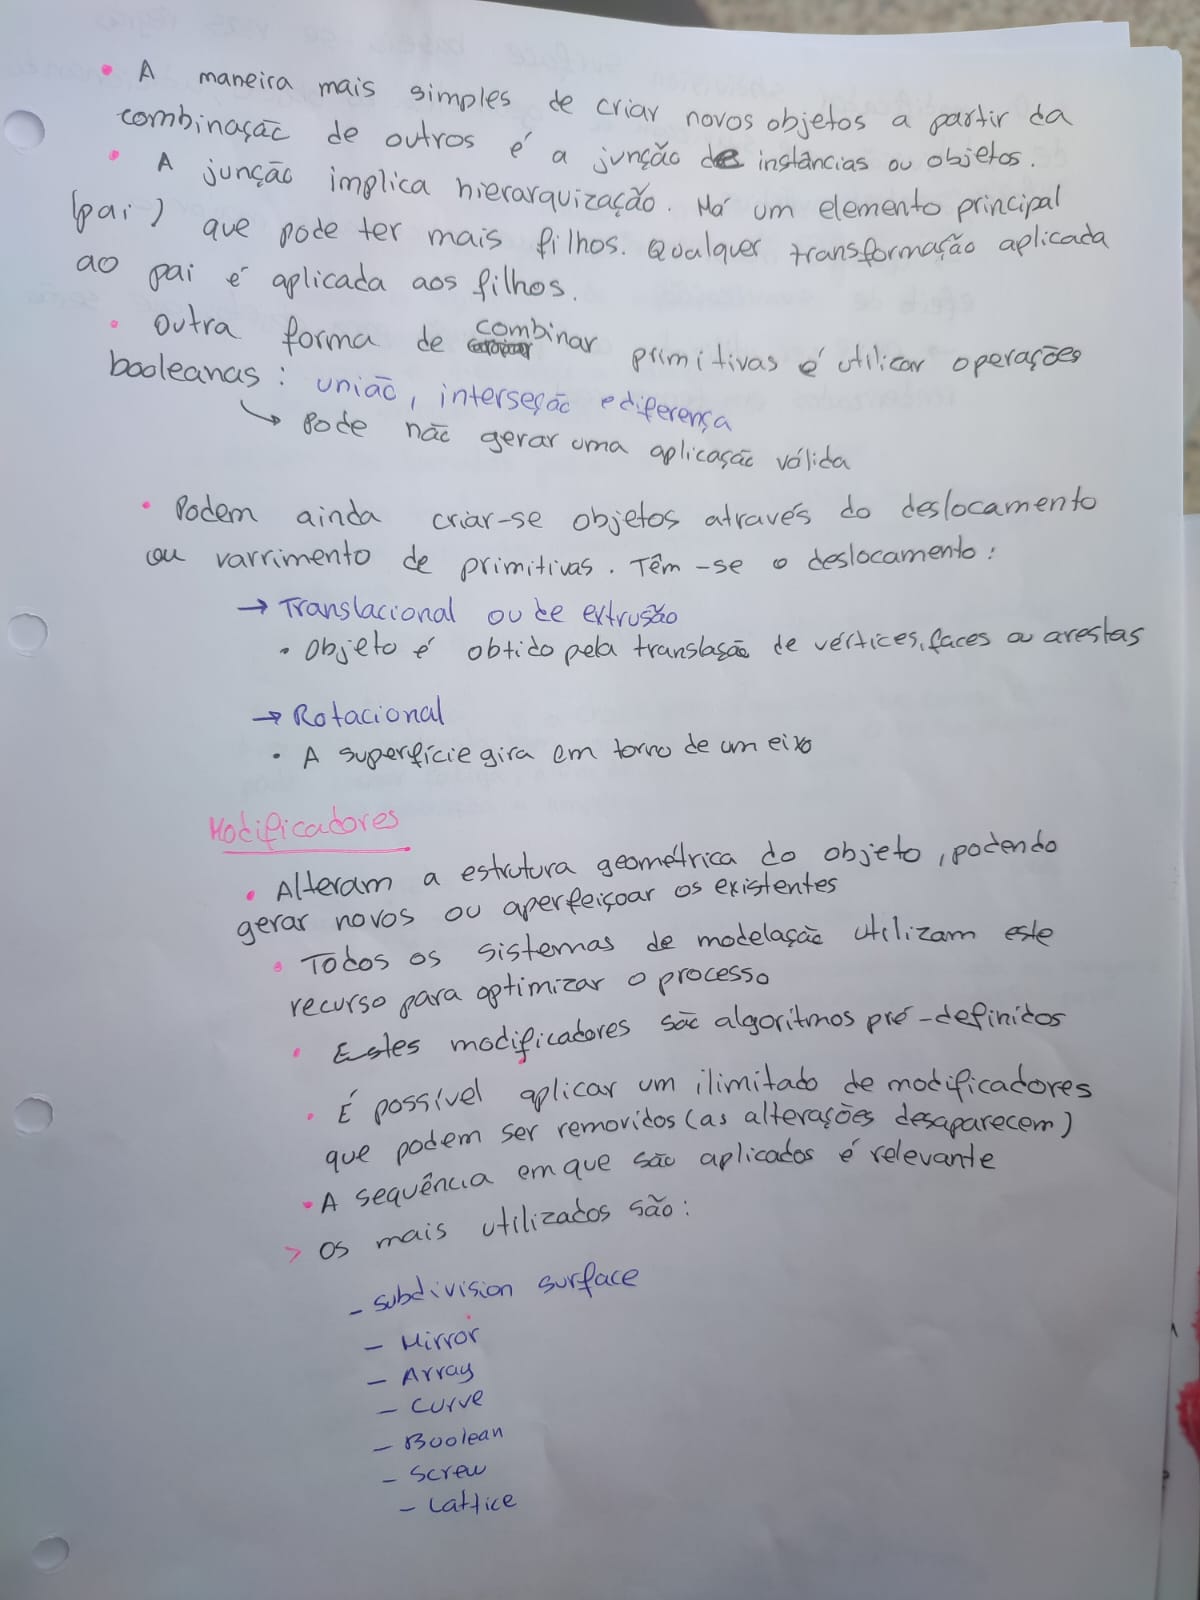 • A maneira mais simples de criar novos objetos a partir da
combinação de outros é a junção de instâncias ou objetos.
• A junção implica hierarquização. Há um elemento principal
(pai) que pode ter mais filhos. Qualquer transformação aplicada
ao pai é aplicada aos filhos.
• Outra forma de combinar primitivas é utilizar operações
booleanas: união, interseção e diferença
↳ Pode não gerar uma aplicação válida
• Podem ainda criar-se objetos através do deslocamento
ou varrimento de primitivas. Têm-se o deslocamento:
→ Translacional ou de extrusão
• Objeto é obtido pela translação de vértices, faces ou arestas
→ Rotacional
• A superfície gira em torno de um eixo
Modificadores
• Alteram a estrutura geométrica do objeto, podendo
gerar novos ou aperfeiçoar os existentes
• Todos os sistemas de modelação utilizam este
recurso para optimizar o processo
• Estes modificadores são algoritmos pré-definidos
• É possível aplicar um ilimitado de modificadores
que podem ser removidos (as alterações desaparecem)
• A sequência em que são aplicados é relevante
> Os mais utilizados são:
- Subdivision surface
- Mirror
- Array
- Curve
- Boolean
- Screw
- Lattice